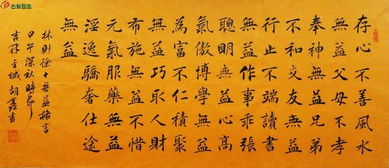 存心不善風水
無益父母不孝
奉神無益兄弟
不和交友無益
行止不端讀書
無益作事乖張
聰明無益心高
氣傲博學無益
為富不仁積聚
無益巧取人財
布施無益不惜
元氣服藥無益
淫逸驕奢仕途
無益
林則徐十無益格言
甲午深秋時節
吉林
書